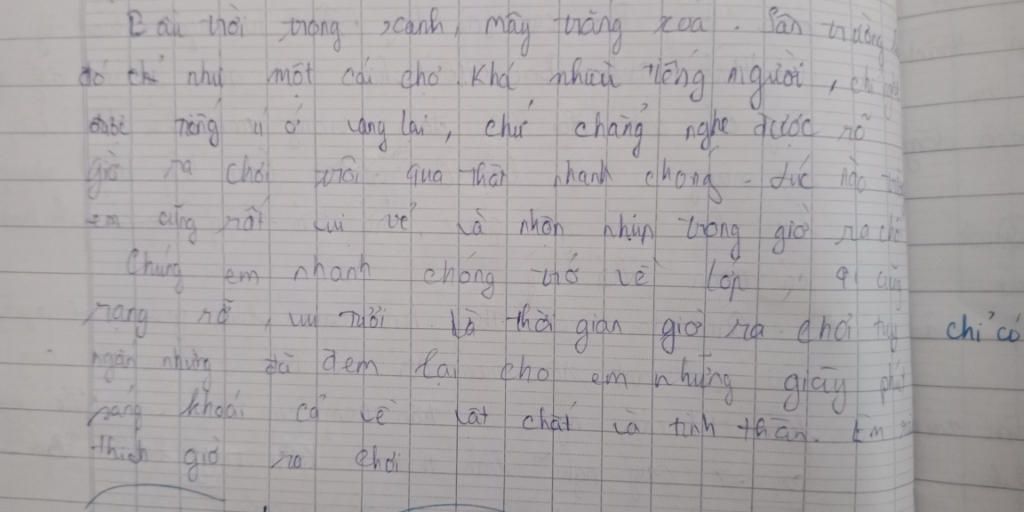 Bầu trời trong xanh, mây trắng xoa. Sân trường
đó chỉ như một cái chợ. Khá nhau tiếng người,
tiếng ú ớ vang lại, chứ chẳng nghe được rõ
giờ ra chơi trôi qua thật nhanh chóng. lúc nào
em cũng rất vui vẻ và nhộn nhịp trong giờ ra chơ
Chúng em nhanh chóng trở về lớp, ai cũng
rạng rỡ, vui tươi. Và thời gian giờ ra chơi tuy chỉ có
ngắn nhưng đã đem lại cho em những giây phút
sảng khoái cả về vật chất và tinh thần. Em
thích giờ ra chơi